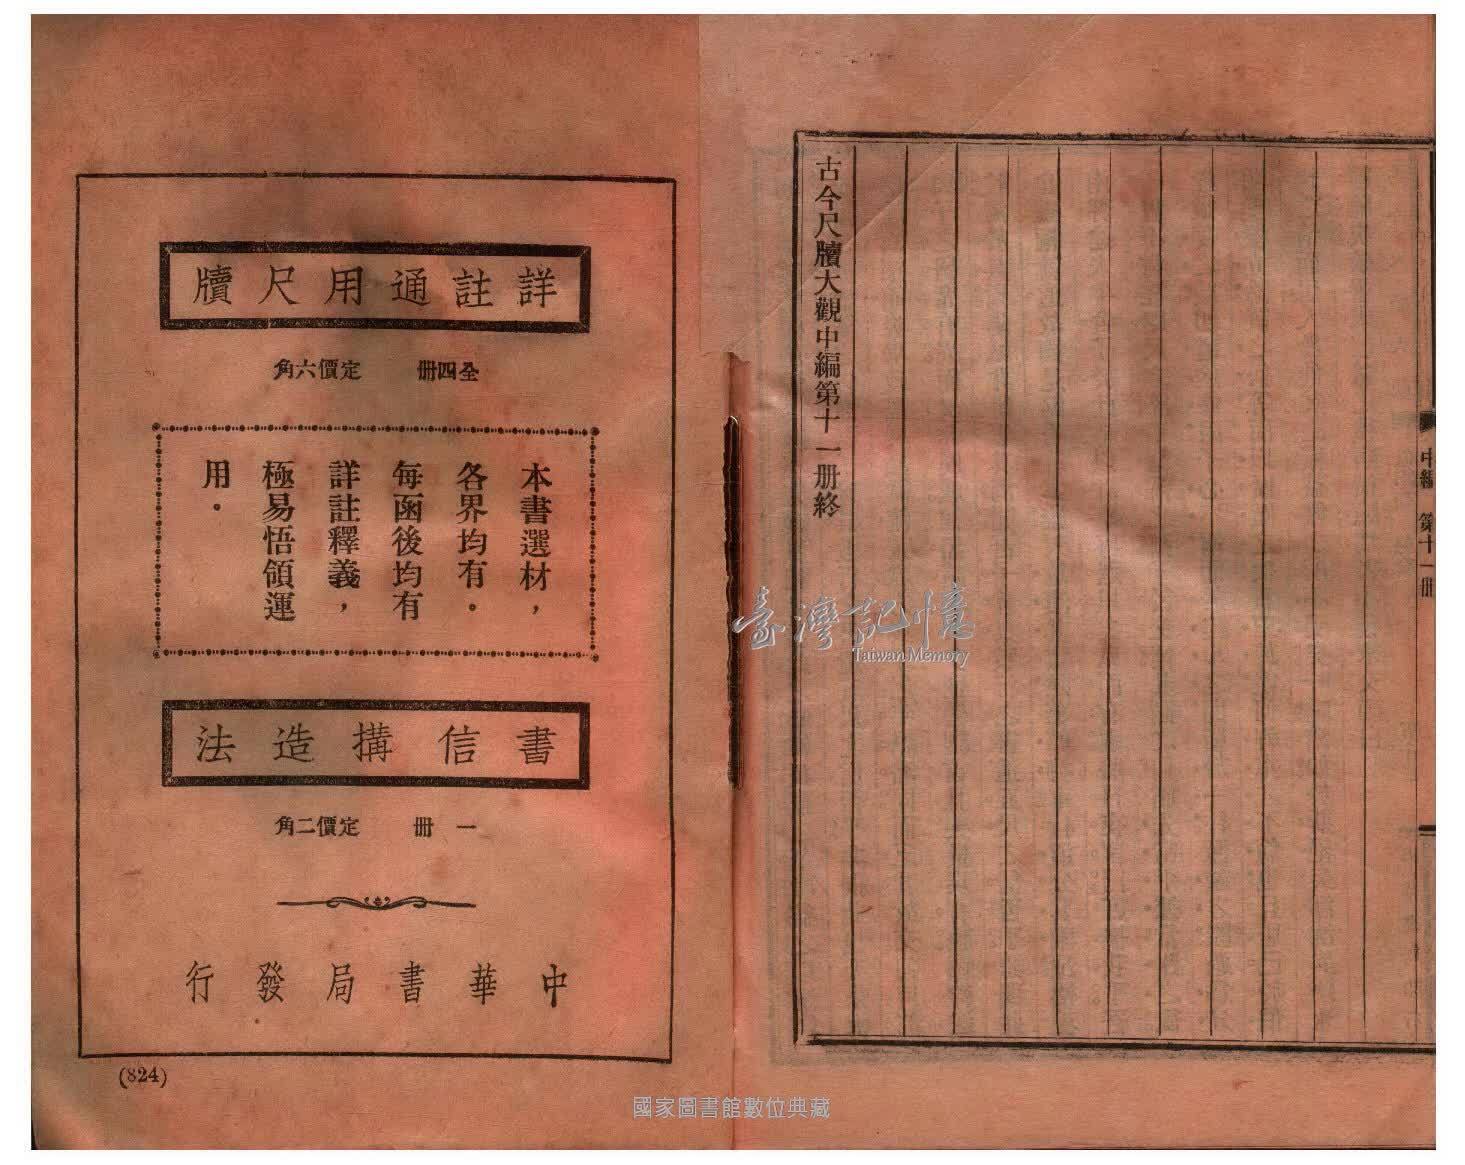 中編　第十一册
古今尺牘大觀中編第十一册終
詳註通用尺牘
全四册　定價六角
本書選材，
各界均有。
每函後均有
詳註釋義，
極易悟領運
用。
書信搆造法
一册　定價二角
中華書局發行
(824)
臺灣記憶
Taiwan Memory
國家圖書館數位典藏